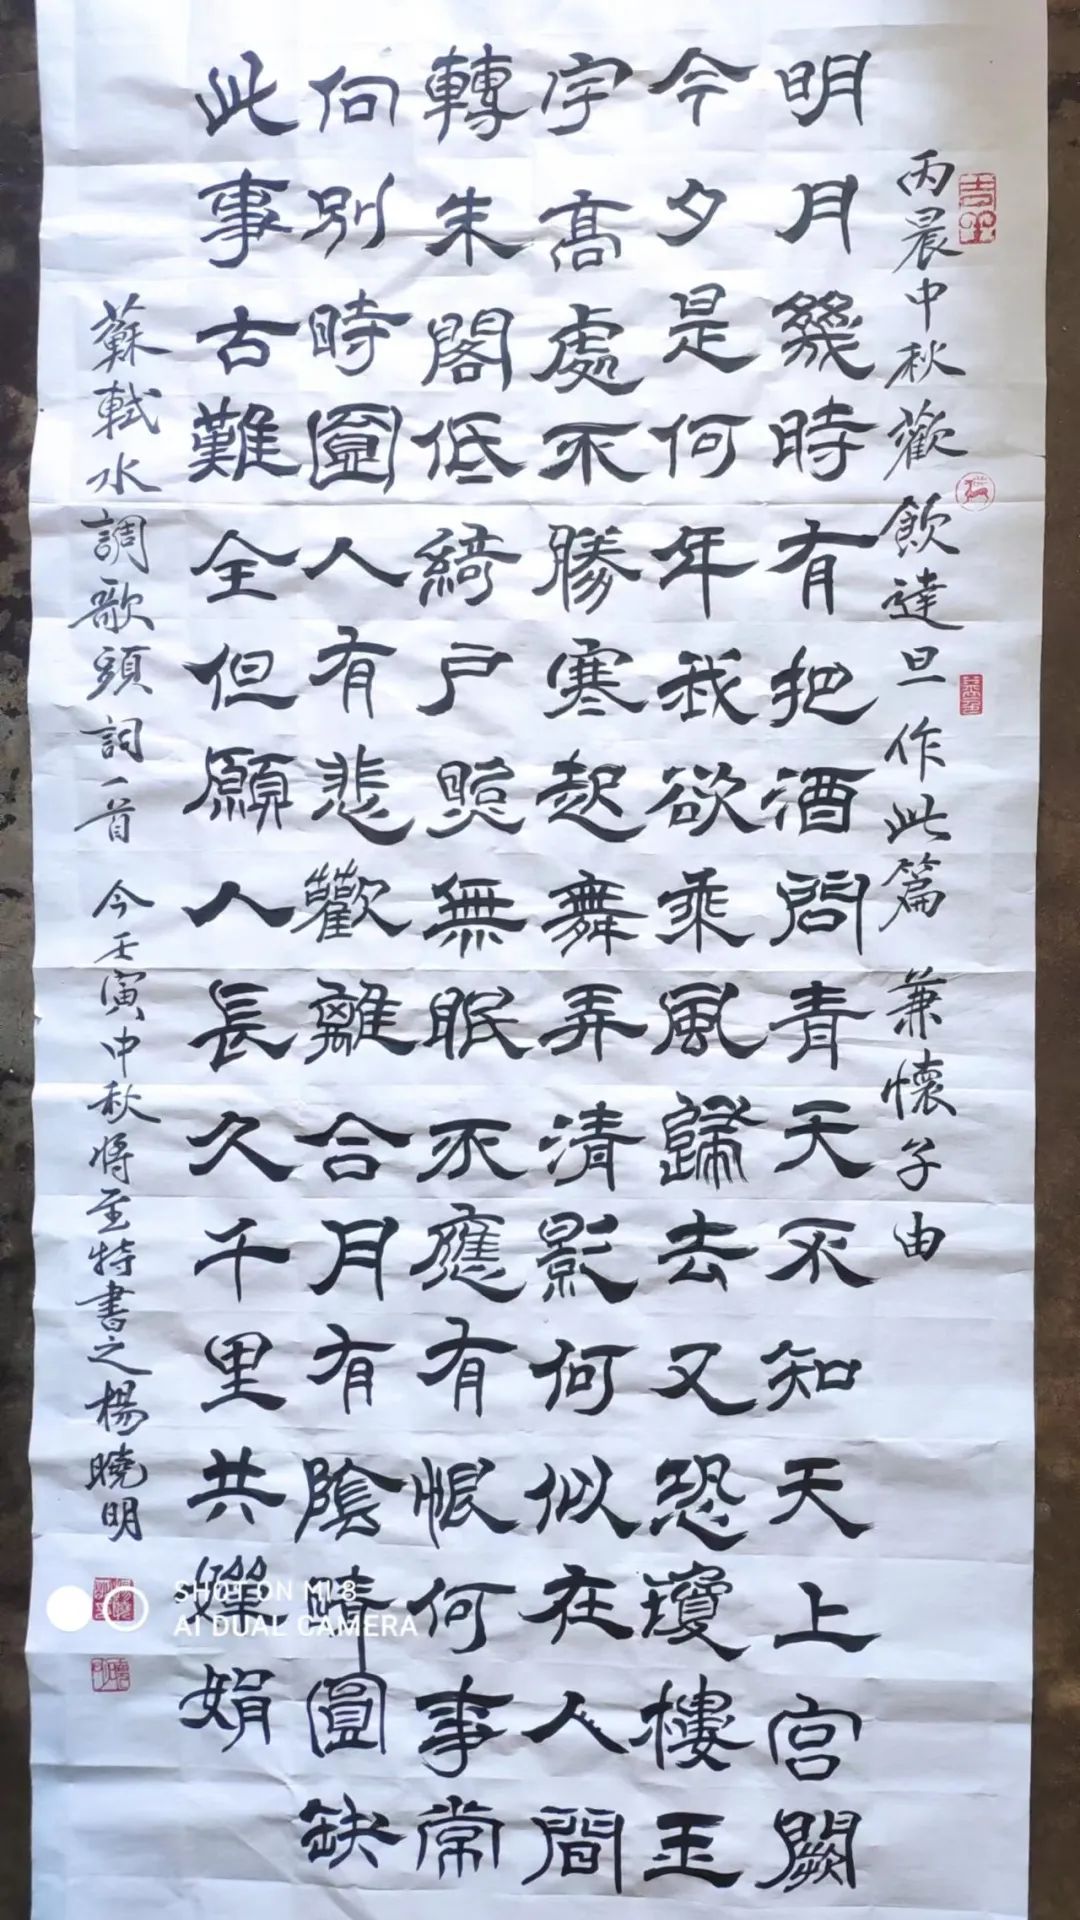 丙晨中秋歡飲達旦作此篇 兼懷子由
明月幾時有把酒問青天不知天上宮闕
今夕是何年我欲乘風歸去又恐瓊樓玉
宇高處不勝寒起舞弄清影何似在人間
轉朱閣低綺戶照無眠不應有恨何事常
向別時圓人有悲歡離合月有陰晴圓缺
此事古難全但願人長久千里共嬋娟
蘇軾水調歌頭詞一首 今壬寅中秋將至特書之楊曉明
SHOT ON MI 8
AI DUAL CAMERA